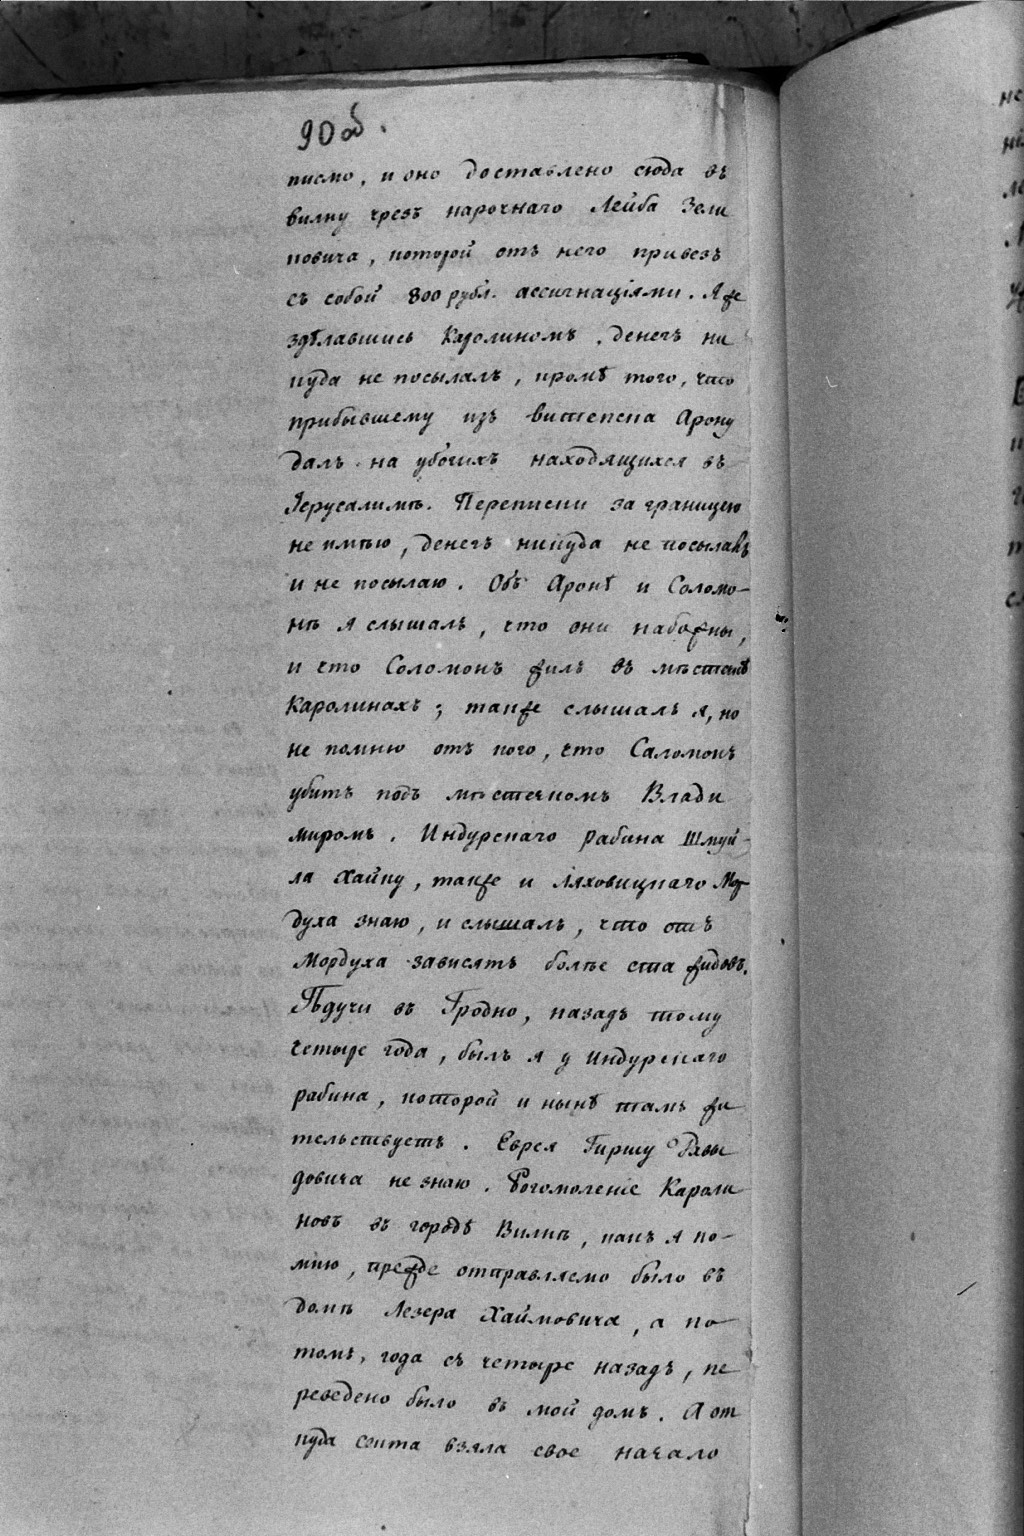 90об.
писмо, и оно доставлено сюда въ
вилну чрезъ нарочнаго Лейба Зели
ковича, которой отъ него привезъ
съ собой 800 рубл. ассигнаціями. Я же
здѣлавшись Каролиномъ, денегъ ни
куда не посылалъ, кромѣ того, что
прибывшему изъ витепска Арону
далъ на убогихъ находящихся въ
Іерусалимѣ. Переписки за границею
не имѣю, денегъ никуда не посылалъ
и не посылаю. Объ Аронѣ и Соломо-
нѣ я слышалъ, что они набожны,
и что Соломонъ жилъ въ мѣстечкѣ
Каролинахъ; также слышалъ я, но
не помню отъ кого, что Саломонъ
убитъ подъ мѣстечкомъ Влади
миромъ. Индурскаго рабина Шмуй-
ла Хайку, также и Ляховицкаго Мор
духа знаю, и слышалъ, что отъ
Мордуха зависятъ болѣе ста жидовъ.
Ѣдучи въ Гродно, назадъ тому
четыре года, былъ я у индурскаго
рабина, которой и нынѣ тамъ жи
тельствуетъ. Еврея Гиршу Давы
довича не знаю. Богомоленіе Кароли
новъ въ городѣ Вилнѣ, какъ я по-
мню, прежде отправляемо было въ
домѣ Лезера Хаймовича, а по
томъ, года съ четыре назадъ, пе
реведено было въ мой домъ. А от
куда секта взяла свое начало